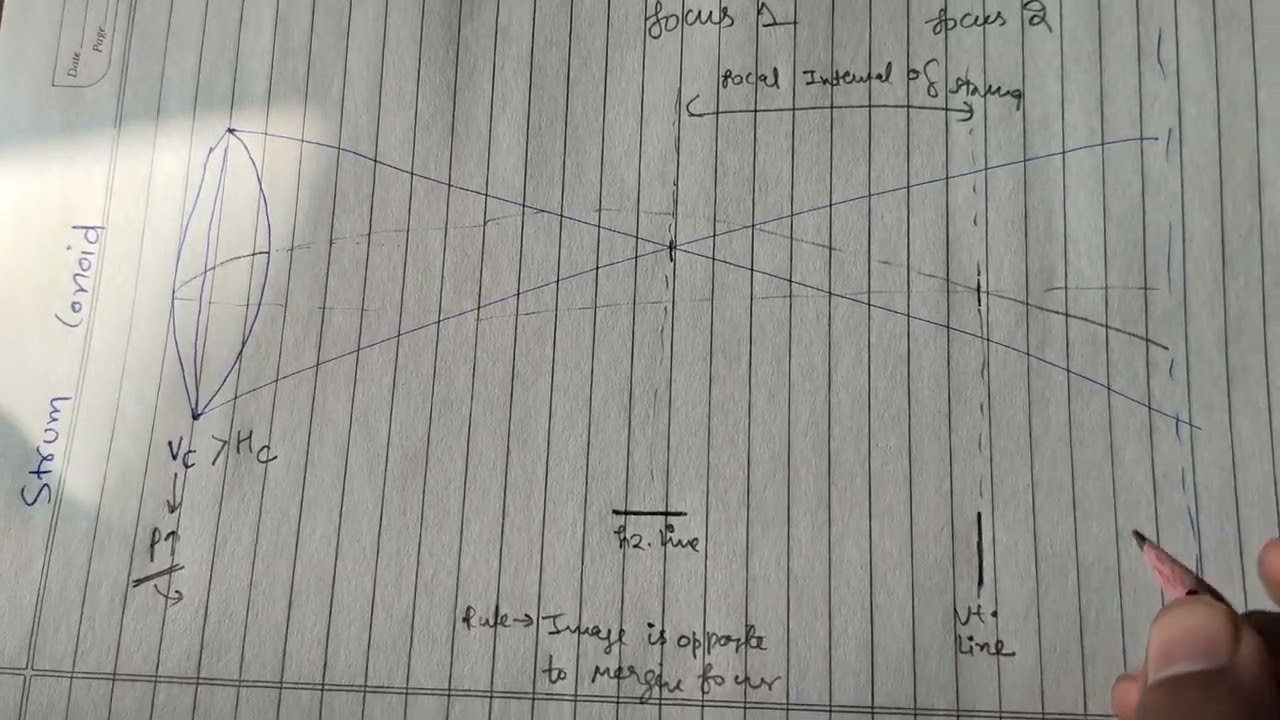 Date
Page
focus 1
focus 2
focal Interval of sturm
Strum Conoid
Vc > Hc
P↑
hz. line
Vt.
line
Rule → Image is opposite
to mergine focus